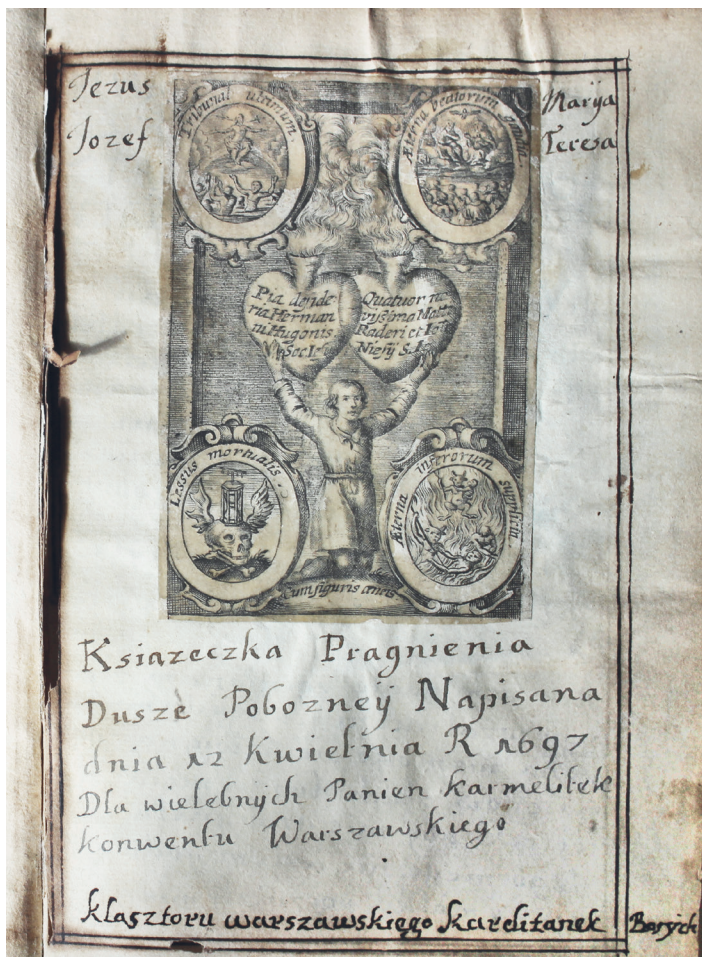 Jezus
Jozef
Marya
Teresa
Tribunal ultimum.
Æterna beatorum gaudia.
Pia deside
ria Herman
ni Hugonis
Soc. Ie
Quatuor no
vyssima Matt
Raderi et Ioā
Niesÿ S. Ie
Lessus mortualis.
Æterna inferorum supplicia.
Cum figuris æneis
Ksiazeczka Pragnienia
Dusze Pobozney Napisana
dnia 12 Kwietnia R 1697
Dla wielebnych Panien karmelitek
konwentu Warszawskiego
klasztoru warszawskiego karditanek Bosych